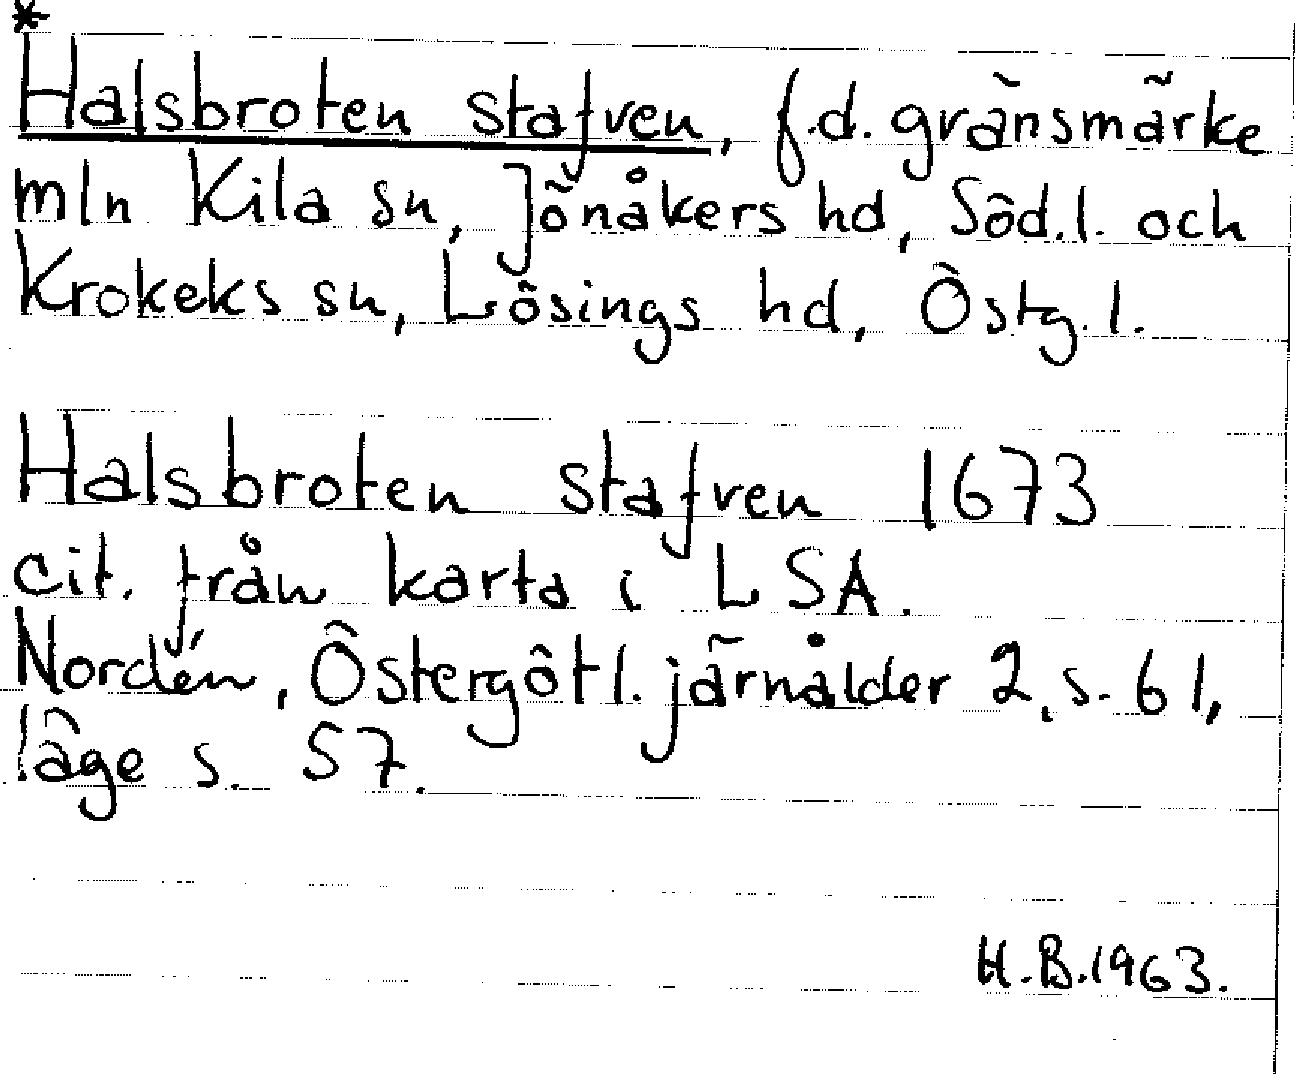 *
Halsbroten stafven, f.d. gränsmärke
mln Kila sn, Jönåkers hd, Söd.l. och
Krokeks sn, Lösings hd, Östg.l.
Halsbroten stafven 1673
cit. från karta i LSA.
Nordén, Östergötl. järnålder 2, s. 61,
läge s. 57.
H.B. 1963.